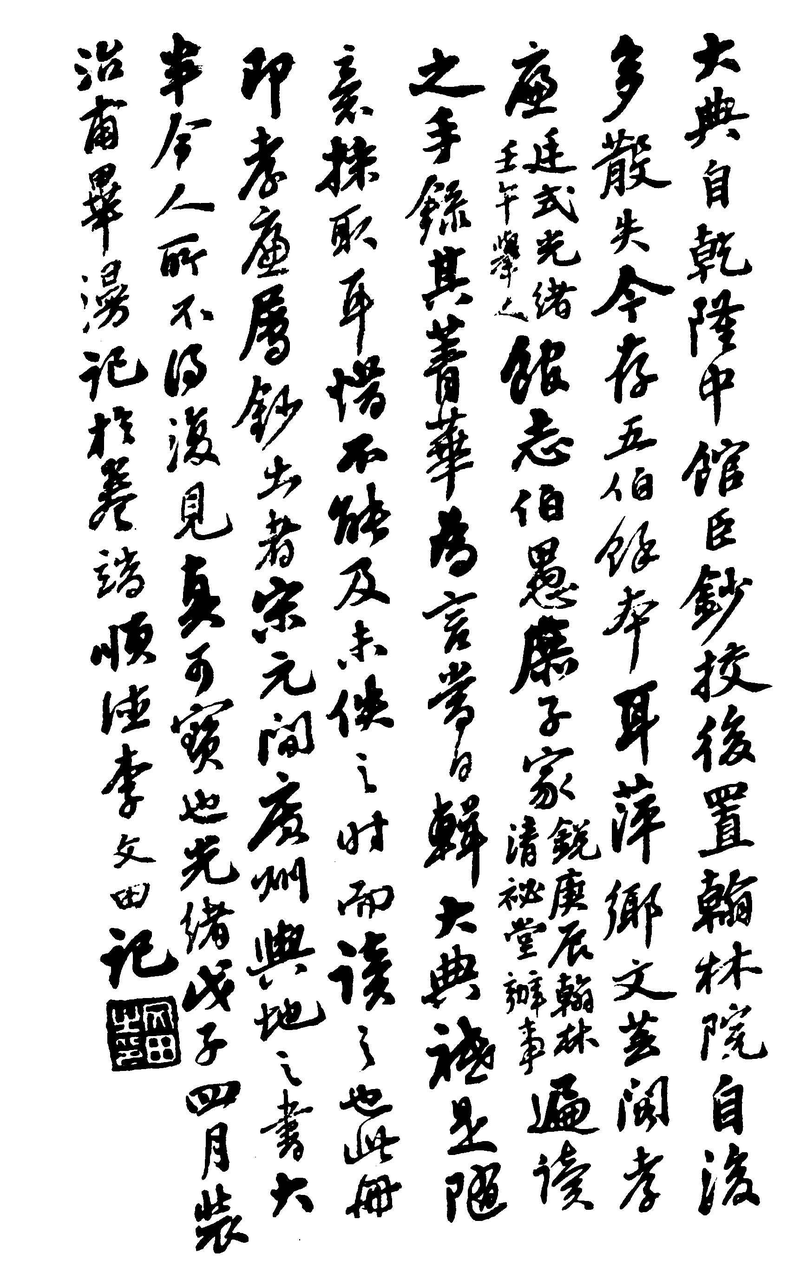 大典自乾隆中館臣鈔挍後置翰林院自後
多散失今存五佰餘本耳萍鄉文芸閣孝
廉廷式光緒壬午舉人館志伯愚詹子家銳庚辰翰林清祕堂辦事遍读
之手錄其菁華為言當日輯大典禠是隨
意採取耳惜不能及未佚之时而读之也此冊
即孝廉屬鈔出者宋元間廣州輿地之書大
半今人所不得復見真可寶也光緒戊子四月裝
治甫畢漫記於卷端順德李文田記
文田之印